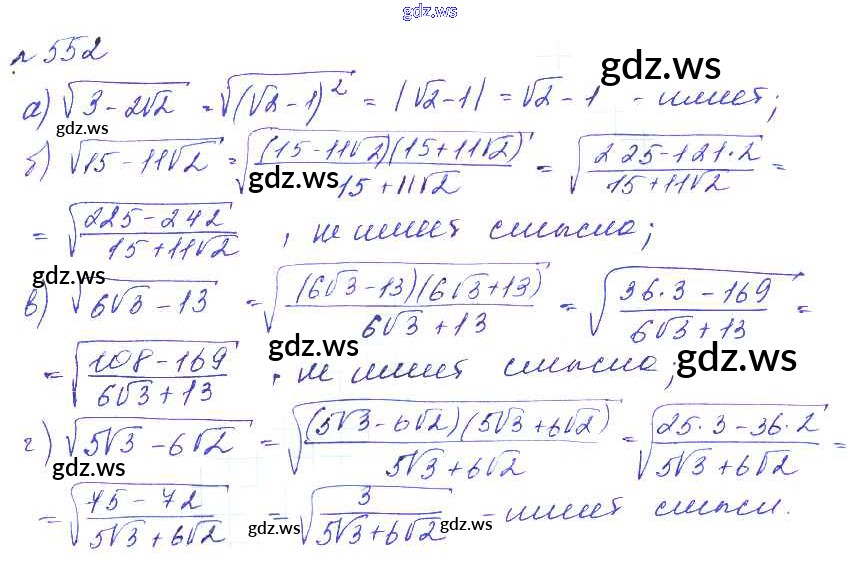 gdz.ws
№ 552
gdz.ws
а) √(3-2√2) = √((√2-1)²) = |√2-1| = √2-1 - имеет;
gdz.ws
б) √(15-11√2) = √((15-11√2)(15+11√2)/(15+11√2)) = √((225-121·2)/(15+11√2)) =
gdz.ws
= √((225-242)/(15+11√2)), не имеет смысла;
gdz.ws
в) √(6√3-13) = √((6√3-13)(6√3+13)/(6√3+13)) = √((36·3-169)/(6√3+13)) =
gdz.ws
gdz.ws
= √((108-169)/(6√3+13)), не имеет смысла;
г) √(5√3-6√2) = √((5√3-6√2)(5√3+6√2)/(5√3+6√2)) = √((25·3-36·2)/(5√3+6√2)) =
gdz.ws
= √((75-72)/(5√3+6√2)) = √(3/(5√3+6√2)) - имеет смысл.
gdz.ws
gdz.ws